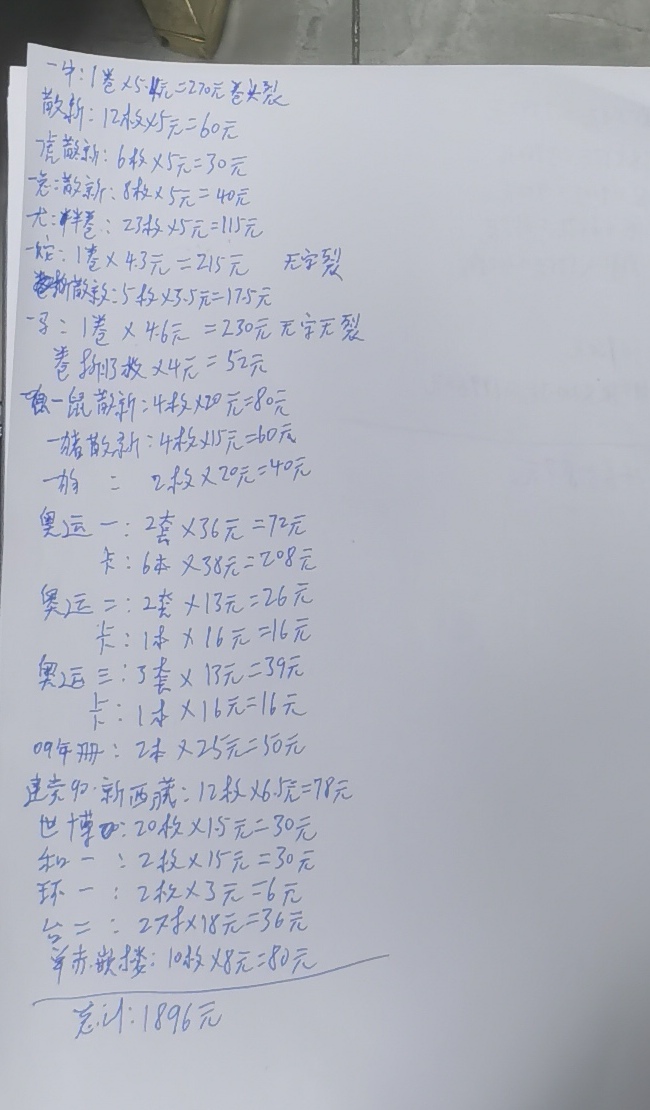 一牛:1卷×5.4元=270元 卷头裂
散新:12枚×5元=60元
虎散新:6枚×5元=30元
一兔:散新:8枚×5元=40元
龙:拌卷:23枚×5元=115元
一蛇:1卷×4.3元=215元 无字裂
卷拆散新:5枚×3.5元=17.5元
一马:1卷×4.6元=230元 无字无裂
卷拆13枚×4元=52元
一鼠散新:4枚×20元=80元
一猪散新:4枚×15元=60元
一狗: 2枚×20元=40元
奥运一:2套×36元=72元
卡:6本×38元=208元
奥运二:2套×13元=26元
卡:1本×16元=16元
奥运三:3套×13元=39元
卡:1本×16元=16元
09年册:2本×25元=50元
建党90.新西藏:12枚×6.5元=78元
世博:20枚×1.5元=30元
和一:2枚×15元=30元
环一:2枚×3元=6元
台二:2枚×18元=36元
单赤嵌楼:10枚×8元=80元
总计:1896元